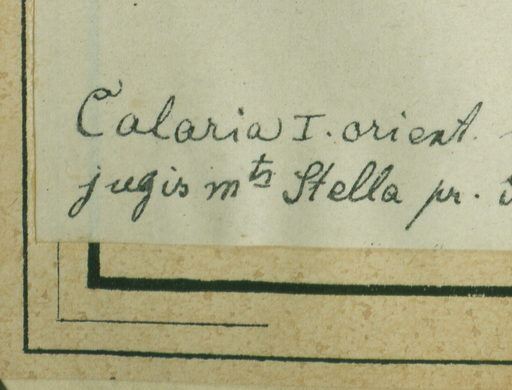 Calaria I. orient.
jugis mts Stella pr.